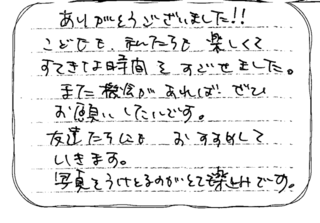 ありがとうございました!!
こどもも、私たちも 楽しくて
すてきな時間を すごせました。
また機会があれば ぜひ
お願いしたいです。
友達たちにも おすすめして
いきます。
写真をうけとるのがとても楽しみです。